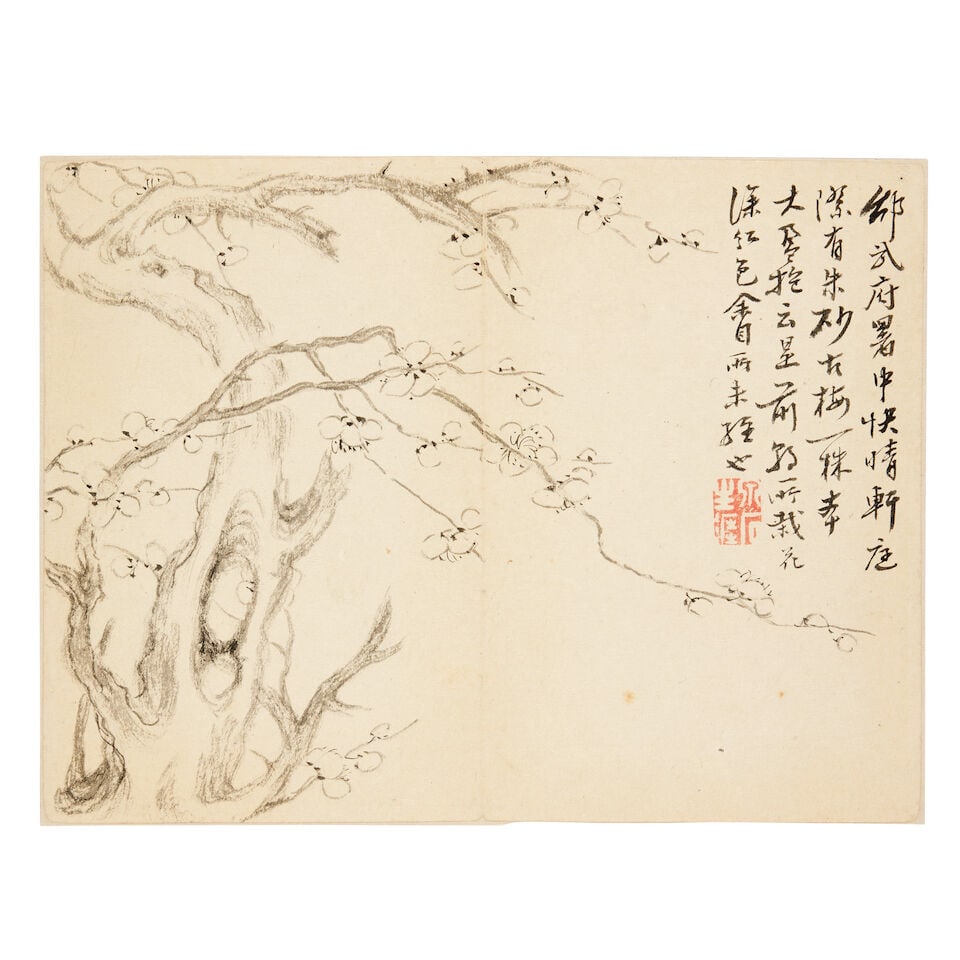 邵武府署中快晴軒庭
際有朱砂古梅一株本
大盈抱云是前朝所栽花
深紅色余目所未經也